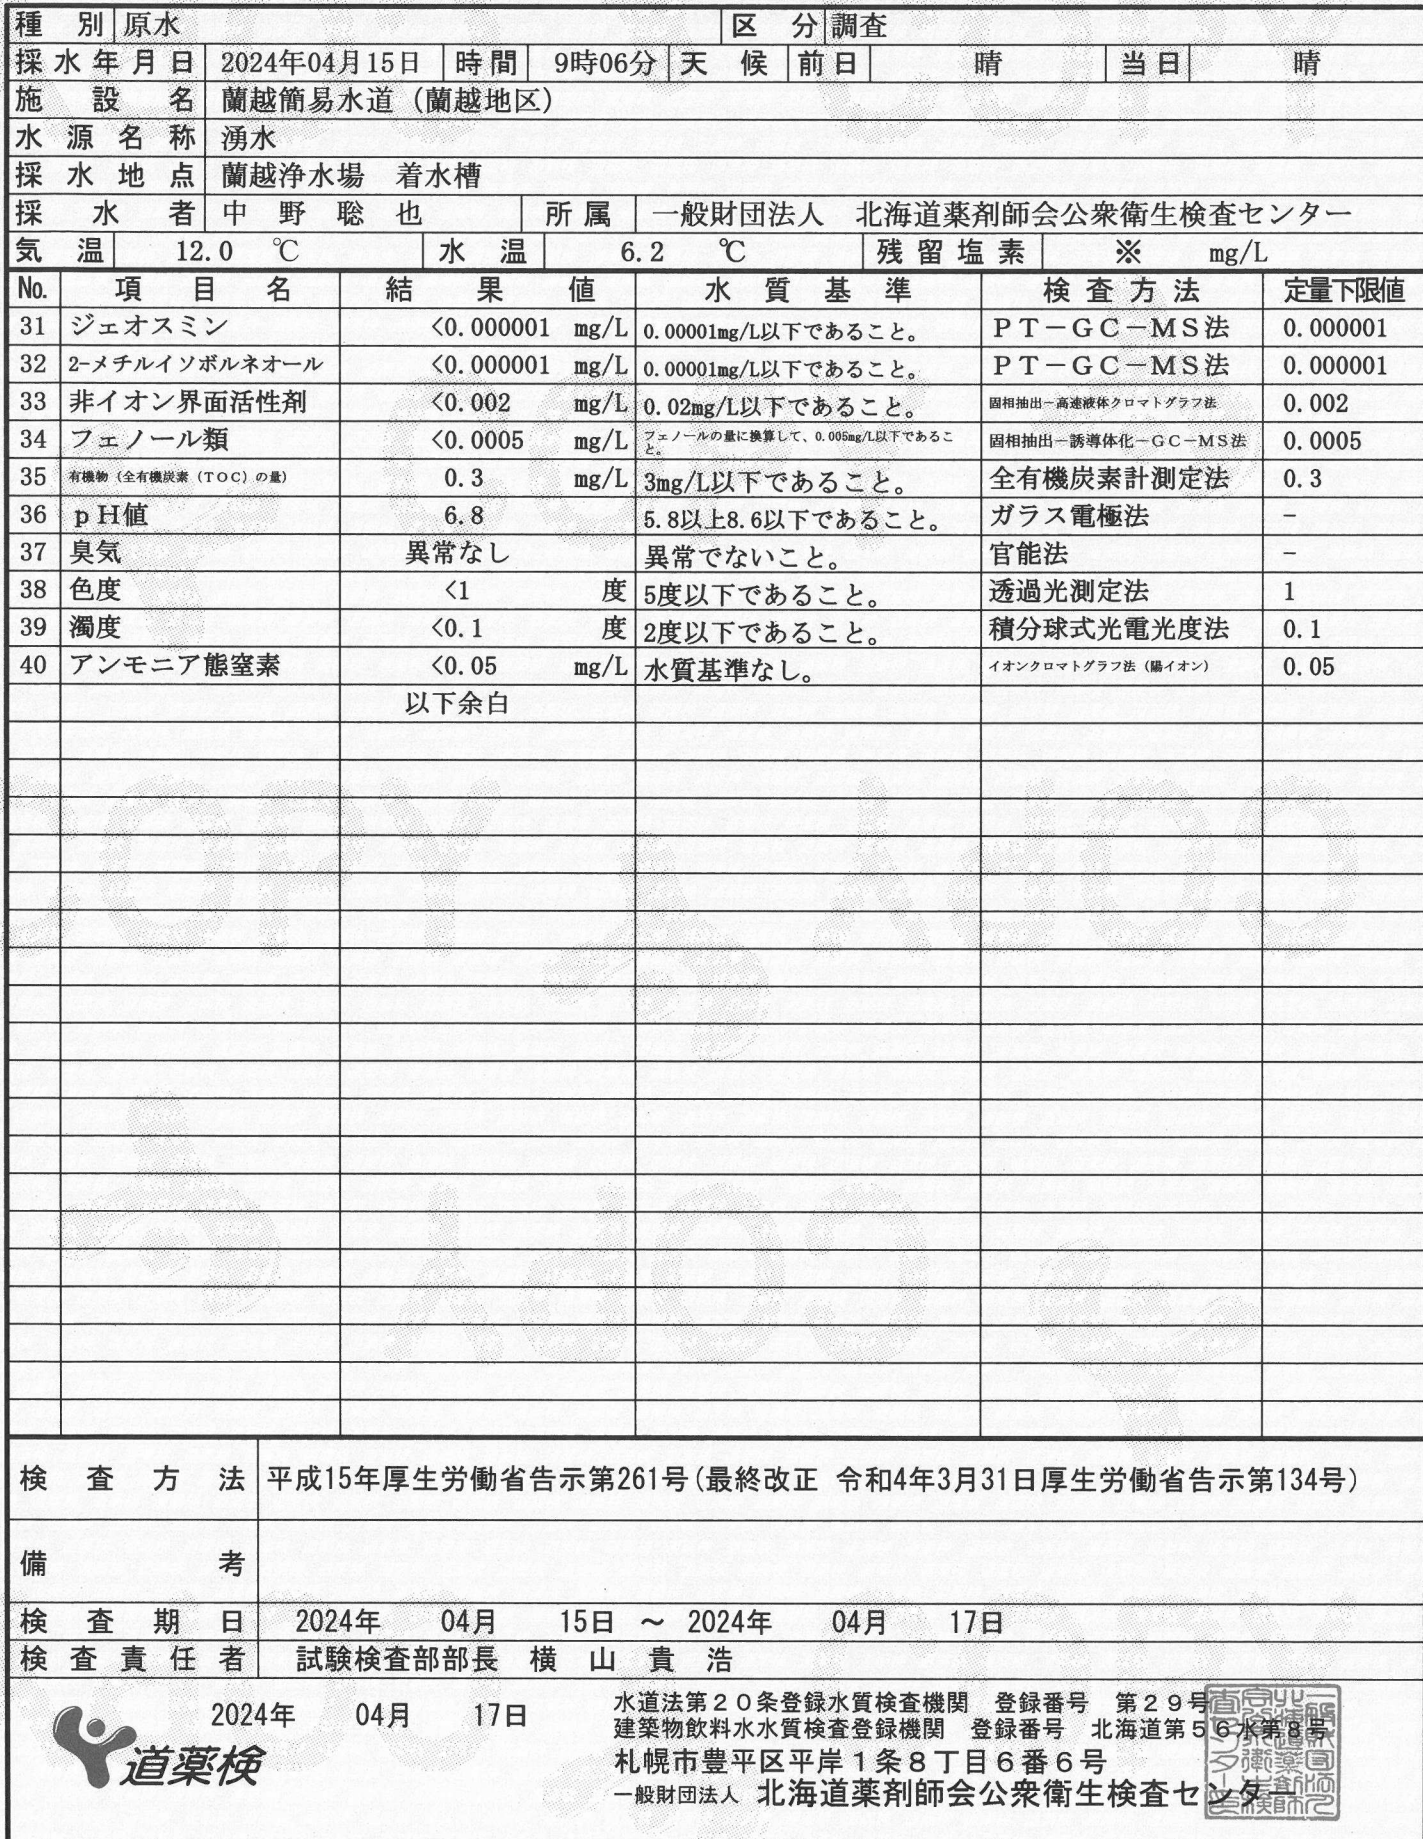 種 別 原水 区 分 調査
採水年月日 2024年04月15日 時間 9時06分 天候 前日 晴 当日 晴
施設名 蘭越簡易水道（蘭越地区）
水源名称 湧水
採水地点 蘭越浄水場 着水槽
採水者 中野聡也 所属 一般財団法人 北海道薬剤師会公衆衛生検査センター
気温 12.0 ℃ 水温 6.2 ℃ 残留塩素 ※ mg/L
No. 項目名 結果値 水質基準 検査方法 定量下限値
31 ジェオスミン <0.000001 mg/L 0.00001mg/L以下であること。 ＰＴ－ＧＣ－ＭＳ法 0.000001
32 2-メチルイソボルネオール <0.000001 mg/L 0.00001mg/L以下であること。 ＰＴ－ＧＣ－ＭＳ法 0.000001
33 非イオン界面活性剤 <0.002 mg/L 0.02mg/L以下であること。 固相抽出－高速液体クロマトグラフ法 0.002
34 フェノール類 <0.0005 mg/L フェノールの量に換算して、0.005mg/L以下であること。 固相抽出－誘導体化－ＧＣ－ＭＳ法 0.0005
35 有機物（全有機炭素（ＴＯＣ）の量） 0.3 mg/L 3mg/L以下であること。 全有機炭素計測定法 0.3
36 ｐＨ値 6.8 5.8以上8.6以下であること。 ガラス電極法 －
37 臭気 異常なし 異常でないこと。 官能法 －
38 色度 <1 度 5度以下であること。 透過光測定法 1
39 濁度 <0.1 度 2度以下であること。 積分球式光電光度法 0.1
40 アンモニア態窒素 <0.05 mg/L 水質基準なし。 イオンクロマトグラフ法（陽イオン） 0.05
以下余白
検査方法 平成15年厚生労働省告示第261号(最終改正 令和4年3月31日厚生労働省告示第134号)
備考
検査期日 2024年 04月 15日 ～ 2024年 04月 17日
検査責任者 試験検査部部長 横山貴浩
2024年 04月 17日
道薬検
水道法第２０条登録水質検査機関 登録番号 第２９号
建築物飲料水水質検査登録機関 登録番号 北海道第５６水第８号
札幌市豊平区平岸１条８丁目６番６号
一般財団法人 北海道薬剤師会公衆衛生検査センター
COPY
COPY
COPY